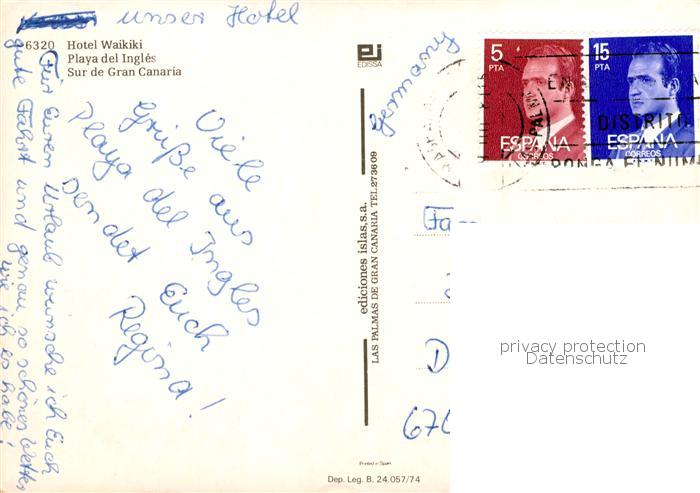 unser Hotel
6320 Hotel Waikiki
Playa del Inglés
Sur de Gran Canaria
Viele
Grüße aus
Playa del Ingles
sendet Euch
Regina!
Für Euren Urlaub wünsche ich Euch
gute Fahrt und genau so schönes Wetter
wie ich es habe!
EDISSA
ediciones islas,s.a.
LAS PALMAS DE GRAN CANARIA TEL.273609
Printed in Spain
Dep. Leg. B. 24.057/74
Germany
5
PTA
ESPAÑA
CORREOS
15
PTA
ESPAÑA
CORREOS
DISTRITO
PONGA EL NUM
Fa
D
676
privacy protection
Datenschutz